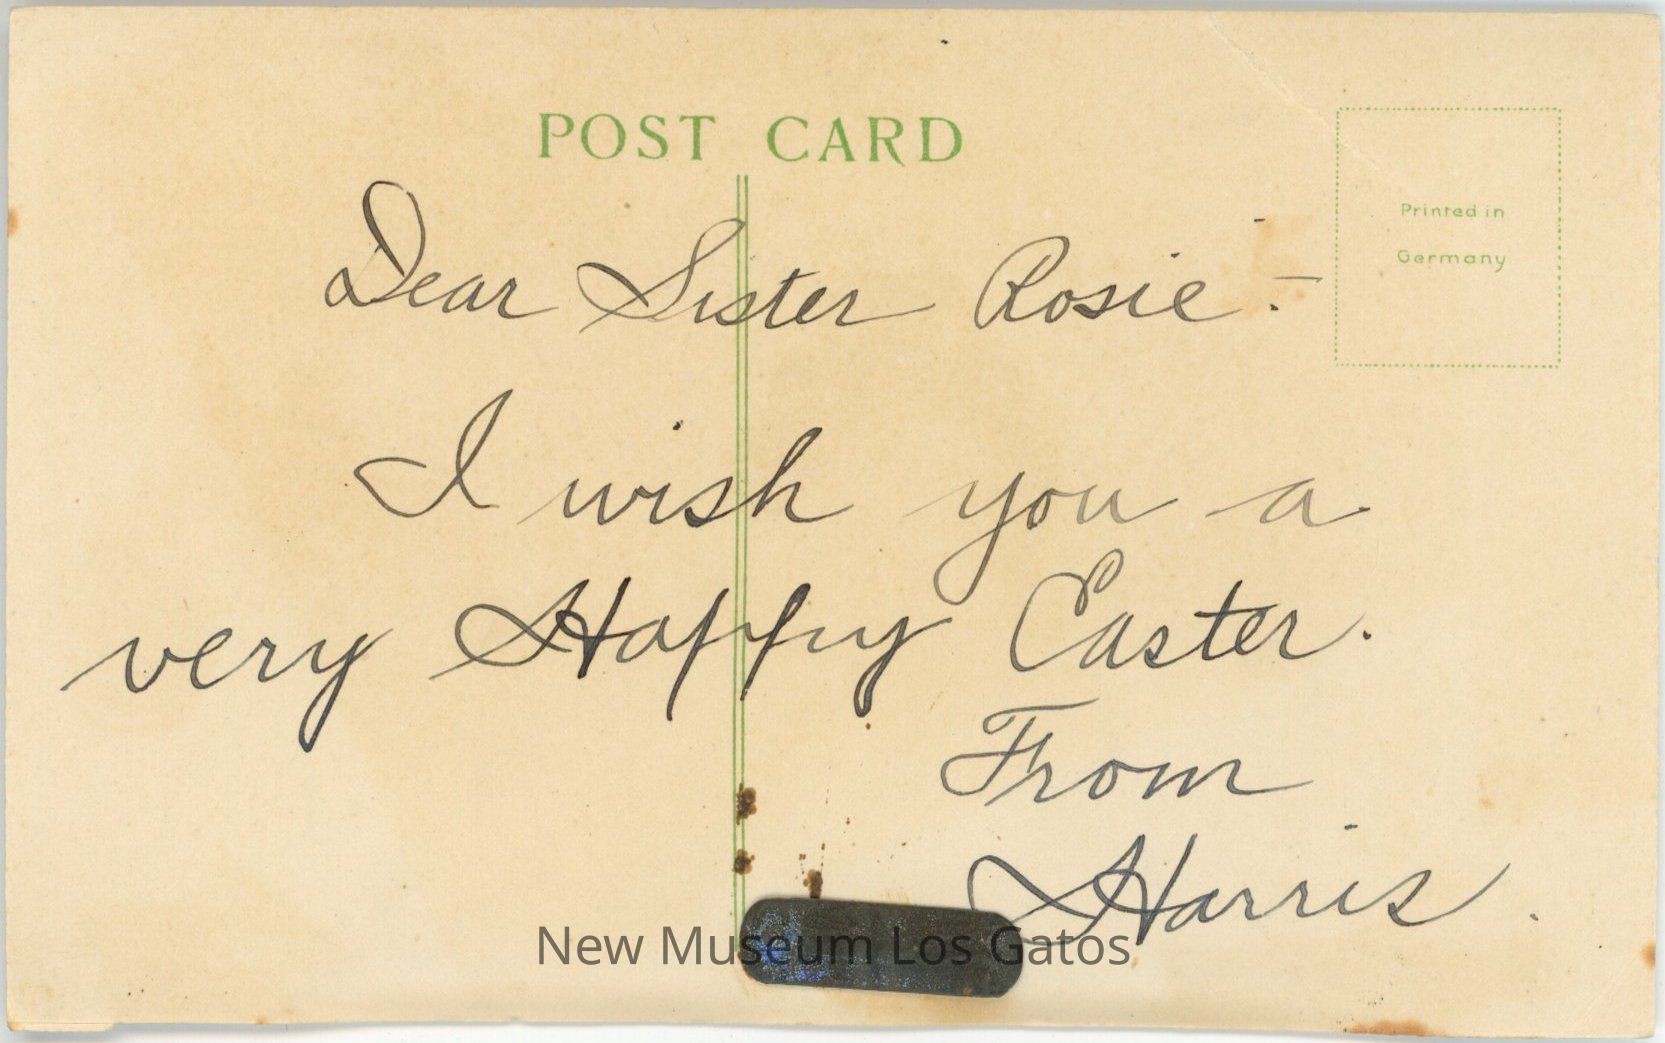 POST CARD
Printed in
Germany
Dear Sister Rosie:—
I wish you a
very Happy Easter.
From
Harris.
New Museum Los Gatos